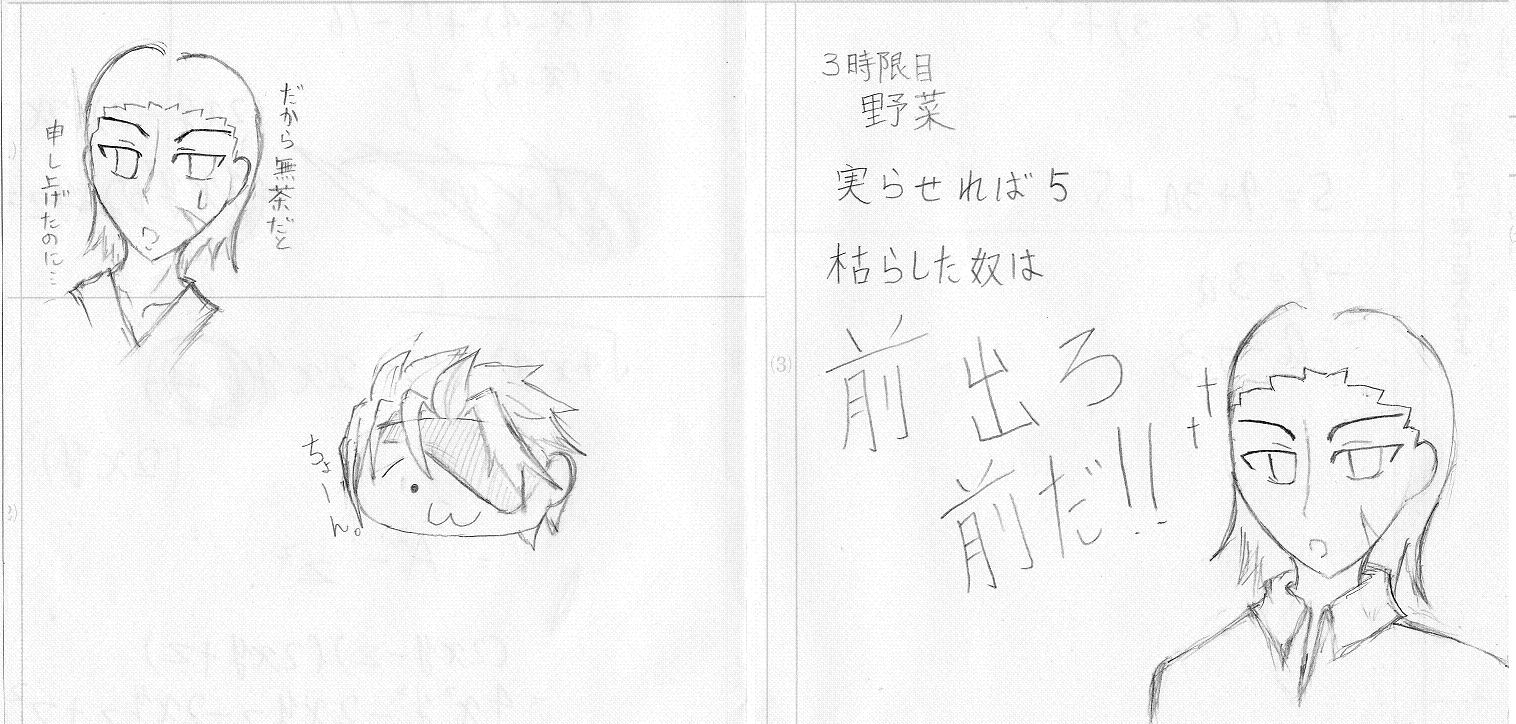 だから無茶だと
申し上げたのに…
ちょーん。
(3)
3時限目
野菜
実らせれば5
枯らした奴は
前出ろ
前だ!!